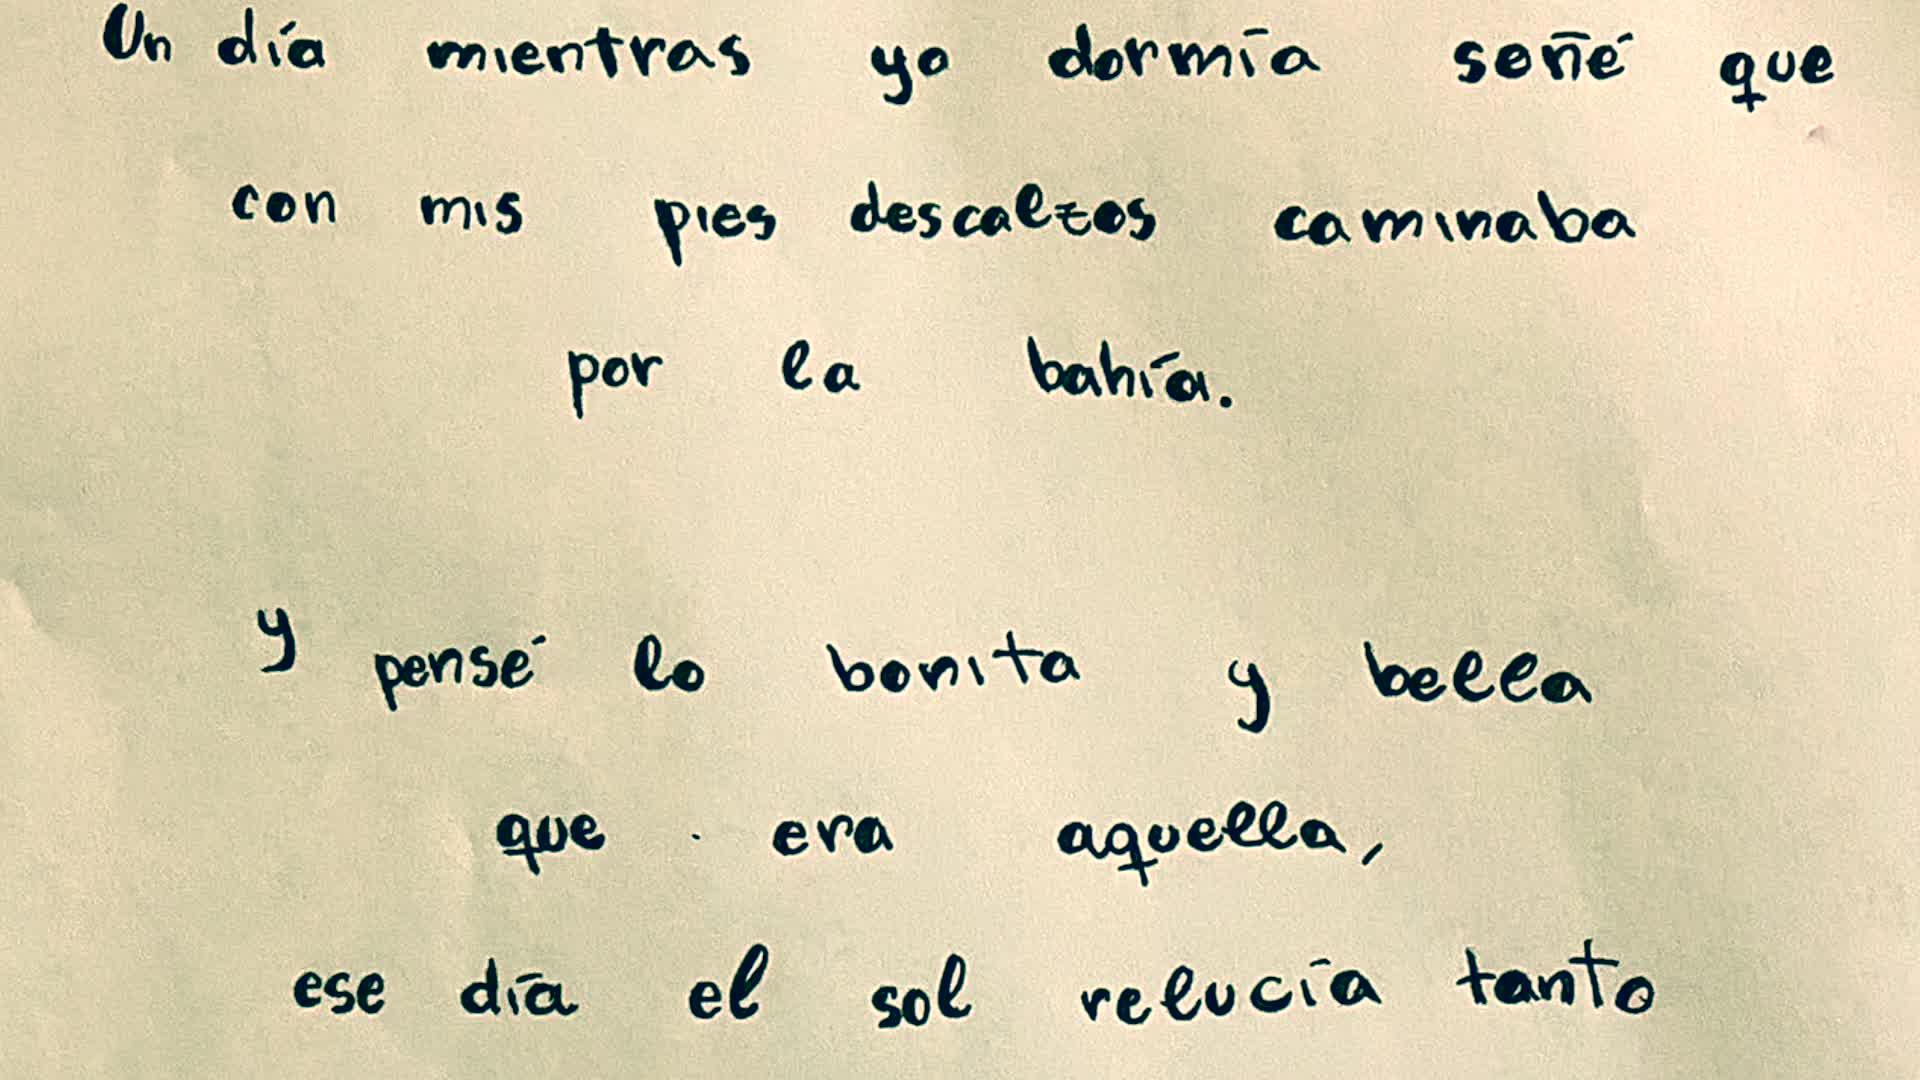 Un día mientras yo dormía soñé que
con mis pies descalzos caminaba
por la bahía.
y pensé lo bonita y bella
que era aquella,
ese día el sol relucía tanto